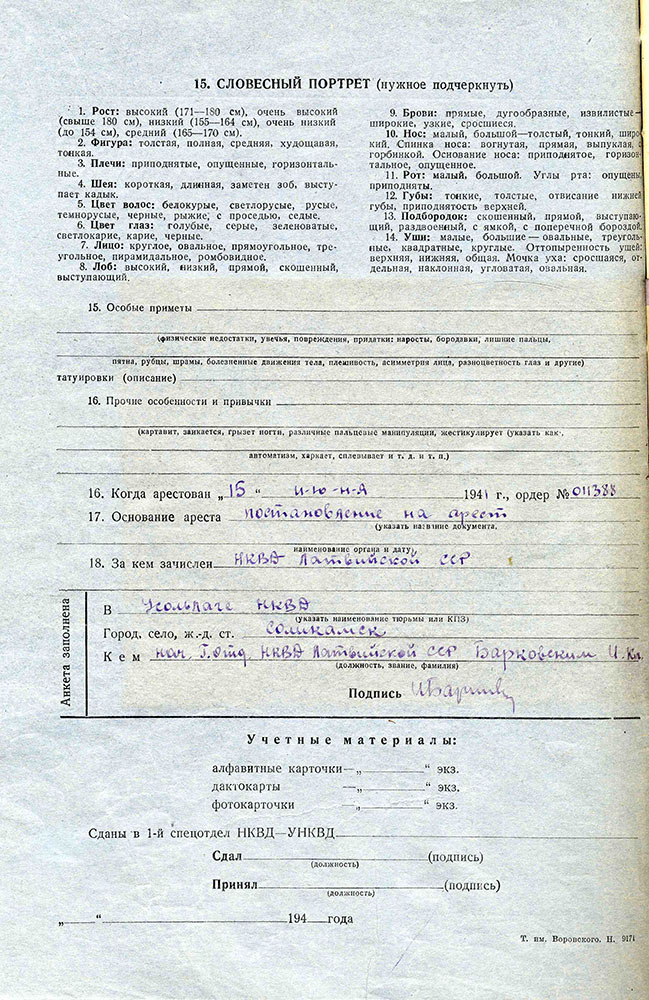 15. СЛОВЕСНЫЙ ПОРТРЕТ (нужное подчеркнуть)
1. Рост: высокий (171—180 см), очень высокий
(свыше 180 см), низкий (155—164 см), очень низкий
(до 154 см), средний (165—170 см).
2. Фигура: толстая, полная, средняя, худощавая,
тонкая.
3. Плечи: приподнятые, опущенные, горизонталь-
ные.
4. Шея: короткая, длинная, заметен зоб, высту-
пает кадык.
5. Цвет волос: белокурые, светлорусые, русые,
темнорусые, черные, рыжие, с проседью, седые.
6. Цвет глаз: голубые, серые, зеленоватые,
светлокарие, карие, черные.
7. Лицо: круглое, овальное, прямоугольное, тре-
угольное, пирамидальное, ромбовидное.
8. Лоб: высокий, низкий, прямой, скошенный,
выступающий.
9. Брови: прямые, дугообразные, извилистые—
широкие, узкие, сросшиеся.
10. Нос: малый, большой—толстый, тонкий, широ
кий. Спинка носа: вогнутая, прямая, выпуклая, с
горбинкой. Основание носа: приподнятое, горизон
тальное, опущенное.
11. Рот: малый, большой. Углы рта: опущены
приподняты.
12. Губы: тонкие, толстые, отвисание нижней
губы, приподнятость верхней.
13. Подбородок: скошенный, прямой, выступаю-
щий, раздвоенный, с ямкой, с поперечной бороздой.
14. Уши: малые, большие—овальные, треуголь-
ные, квадратные, круглые. Оттопыренность ушей:
верхняя, нижняя, общая. Мочка уха: сросшаяся, от
дельная, наклонная, угловатая, овальная.
15. Особые приметы
(физические недостатки, увечья, повреждения, придатки: наросты, бородавки, лишние пальцы,
пятна, рубцы, шрамы, болезненные движения тела, плешивость, асимметрия лица, разноцветность глаз и другие)
татуировки (описание)
16. Прочие особенности и привычки
(картавит, заикается, грызет ногти, различные пальцевые манипуляции, жестикулирует (указать как-,
автоматизм, харкает, сплевывает и т. д. и т. п.)
16. Когда арестован „15“ и-ю-н-я 1941 г., ордер № 011388
17. Основание ареста постановление на арест
(указать название документа,
наименование органа и дату)
18. За кем зачислен НКВД Латвийской ССР
Анкета заполнена
В Усольлаге НКВД
(указать наименование тюрьмы или КПЗ)
Город, село, ж.-д. ст. Соликамск
Кем нач. 1 отд. НКВД Латвийской ССР Барковским И. Кл.
(должность, звание, фамилия)
Подпись
Учетные материалы:
алфавитные карточки—„ “ экз.
дактокарты —„ “ экз.
фотокарточки —„ “ экз.
Сданы в 1-й спецотдел НКВД—УНКВД
Сдал (подпись)
(должность)
Принял (подпись)
(должность)
„ “ 194 года
Т. им. Воровского. Н. 9171